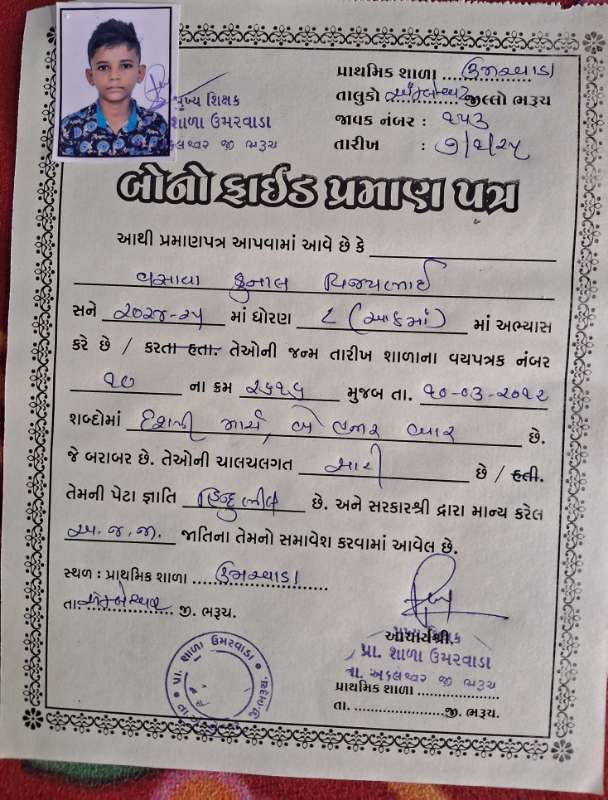 પ્રાથમિક શાળા ઉમરવાડા
તાલુકો અંકલેશ્વર જીલ્લો ભરૂચ
જાવક નંબર : ૨૫૩
તારીખ : ૭/૨/૨૫
મુખ્ય શિક્ષક
શાળા ઉમરવાડા
કલેશ્વર જી ભરૂચ
બોનોફાઈડ પ્રમાણ પત્ર
આથી પ્રમાણપત્ર આપવામાં આવે છે કે
વસાવા કુનાલ વિજયભાઈ
સને ૨૦૨૪-૨૫ માં ધોરણ ૮ (આઠમાં) માં અભ્યાસ
કરે છે / કરતા હતા. તેઓની જન્મ તારીખ શાળાના વયપત્રક નંબર
૧૦ ના ક્રમ ૨૬૧૬ મુજબ તા. ૧૦-૦૩-૨૦૧૨
શબ્દોમાં દશમી માર્ચ, બે હજાર બાર છે.
જે બરાબર છે. તેઓની ચાલચલગત સારી છે / હતી.
તેમની પેટા જ્ઞાતિ હિન્દુ ભીલ છે. અને સરકારશ્રી દ્રારા માન્ય કરેલ
અ.જ.જા. જાતિના તેમનો સમાવેશ કરવામાં આવેલ છે.
સ્થળ : પ્રાથમિક શાળા ઉમરવાડા
તા. અંકલેશ્વર જી. ભરૂચ.
આચાર્યશ્રી
પ્રા. શાળા ઉમરવાડા
તા. અંકલેશ્વર જી ભરૂચ
પ્રાથમિક શાળા
તા. જી. ભરૂચ.
પ્રા. શાળા ઉમરવાડા